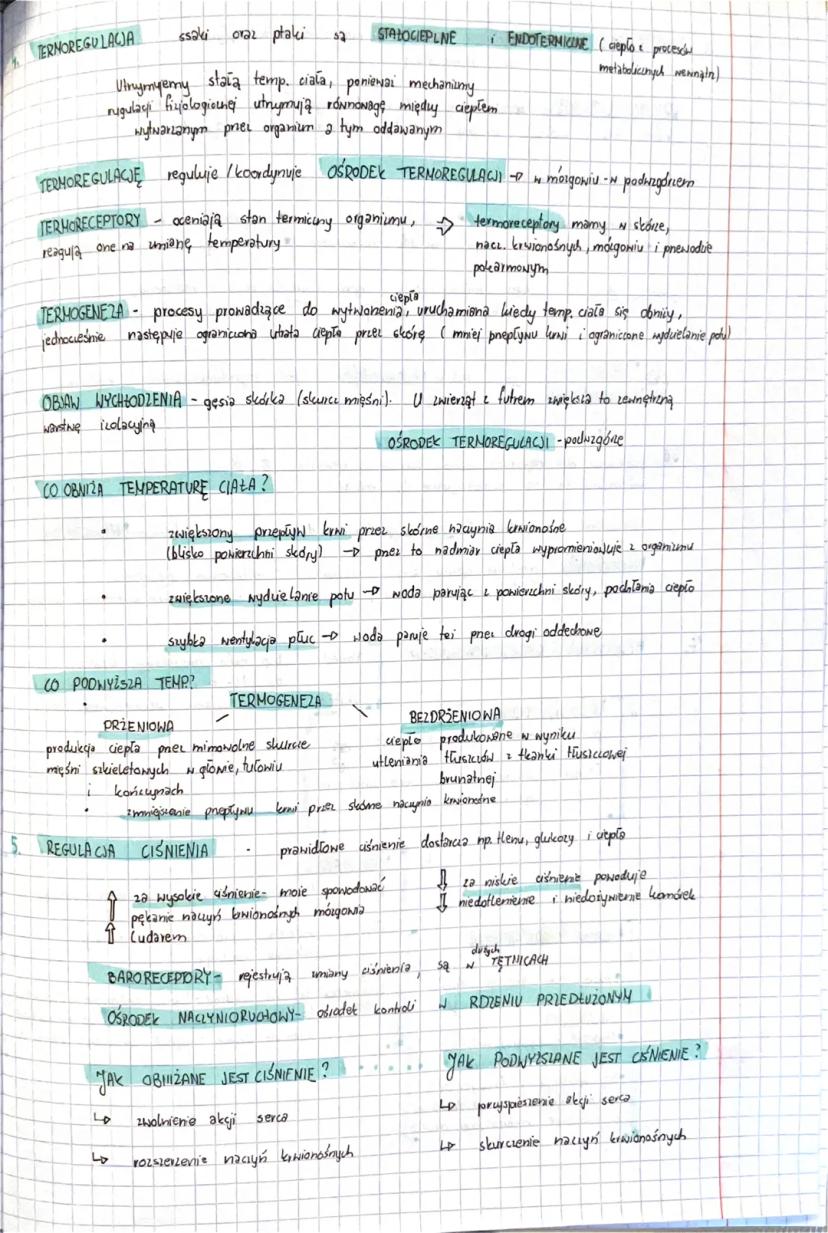 4. TERMOREGULACJA ssaki oraz ptaki są STAŁOCIEPLNE i ENDOTERMICZNE (ciepło z procesów
metabolicznych wewnątrz)
Utrzymujemy stałą temp. ciała, ponieważ mechanizmy
regulacji fizjologicznej utrzymują równowagę między ciepłem
wytwarzanym przez organizm a tym oddawanym
TERMOREGULACJĘ reguluje / koordynuje OŚRODEK TERMOREGULACJI → w mózgowiu - w podwzgórzem
TERMORECEPTORY - oceniają stan termiczny organizmu, ⇒ termoreceptory mamy w skórze,
reagują one na zmianę temperatury nacz. krwionośnych, mózgowiu i przewodzie
pokarmowym
TERMOGENEZA - procesy prowadzące do wytworzenia ciepła, uruchamiana kiedy temp. ciała się obniży,
jednocześnie następuje ograniczona utrata ciepła przez skórę (mniej przepływu krwi i ograniczone wydzielanie potu)
OBJAW WYCHŁODZENIA - gęsia skórka (skurcz mięśni). U zwierząt z futrem zwiększa to zewnętrzną
warstwę izolacyjną
OŚRODEK TERMOREGULACJI - podwzgórze
CO OBNIŻA TEMPERATURĘ CIAŁA?
• zwiększony przepływ krwi przez skórne naczynia krwionośne
(blisko powierzchni skóry) → przez to nadmiar ciepła wypromieniowuje z organizmu
• zwiększone wydzielanie potu → woda parując z powierzchni skóry, pochłania ciepło
• szybka wentylacja płuc → woda paruje też przez drogi oddechowe
CO PODWYŻSZA TEMP?
• TERMOGENEZA
DRŻENIOWA BEZDRŻENIOWA
produkcja ciepła przez mimowolne skurcze ciepło produkowane w wyniku
mięśni szkieletowych w głowie, tułowiu utleniania tłuszczów z tkanki tłuszczowej
i kończynach brunatnej
• zmniejszenie przepływu krwi przez skórne naczynia krwionośne
5. REGULACJA CIŚNIENIA - prawidłowe ciśnienie dostarcza np. tlenu, glukozy i ciepła
⇑ za wysokie ciśnienie - może spowodować ⇓ za niskie ciśnienie powoduje
pękanie naczyń krwionośnych mózgowia ⇓ niedotlenienie i niedożywienie komórek
⇑ (udarem
BARORECEPTORY - rejestrują zmiany ciśnienia, są w dużych TĘTNICACH
OŚRODEK NACZYNIORUCHOWY - ośrodek kontroli W RDZENIU PRZEDŁUŻONYM
JAK OBNIŻANE JEST CIŚNIENIE? JAK PODWYŻSZANE JEST CIŚNIENIE?
↳ zwolnienie akcji serca ↳ przyspieszenie akcji serca
↳ rozszerzenie naczyń krwionośnych ↳ skurczenie naczyń krwionośnych